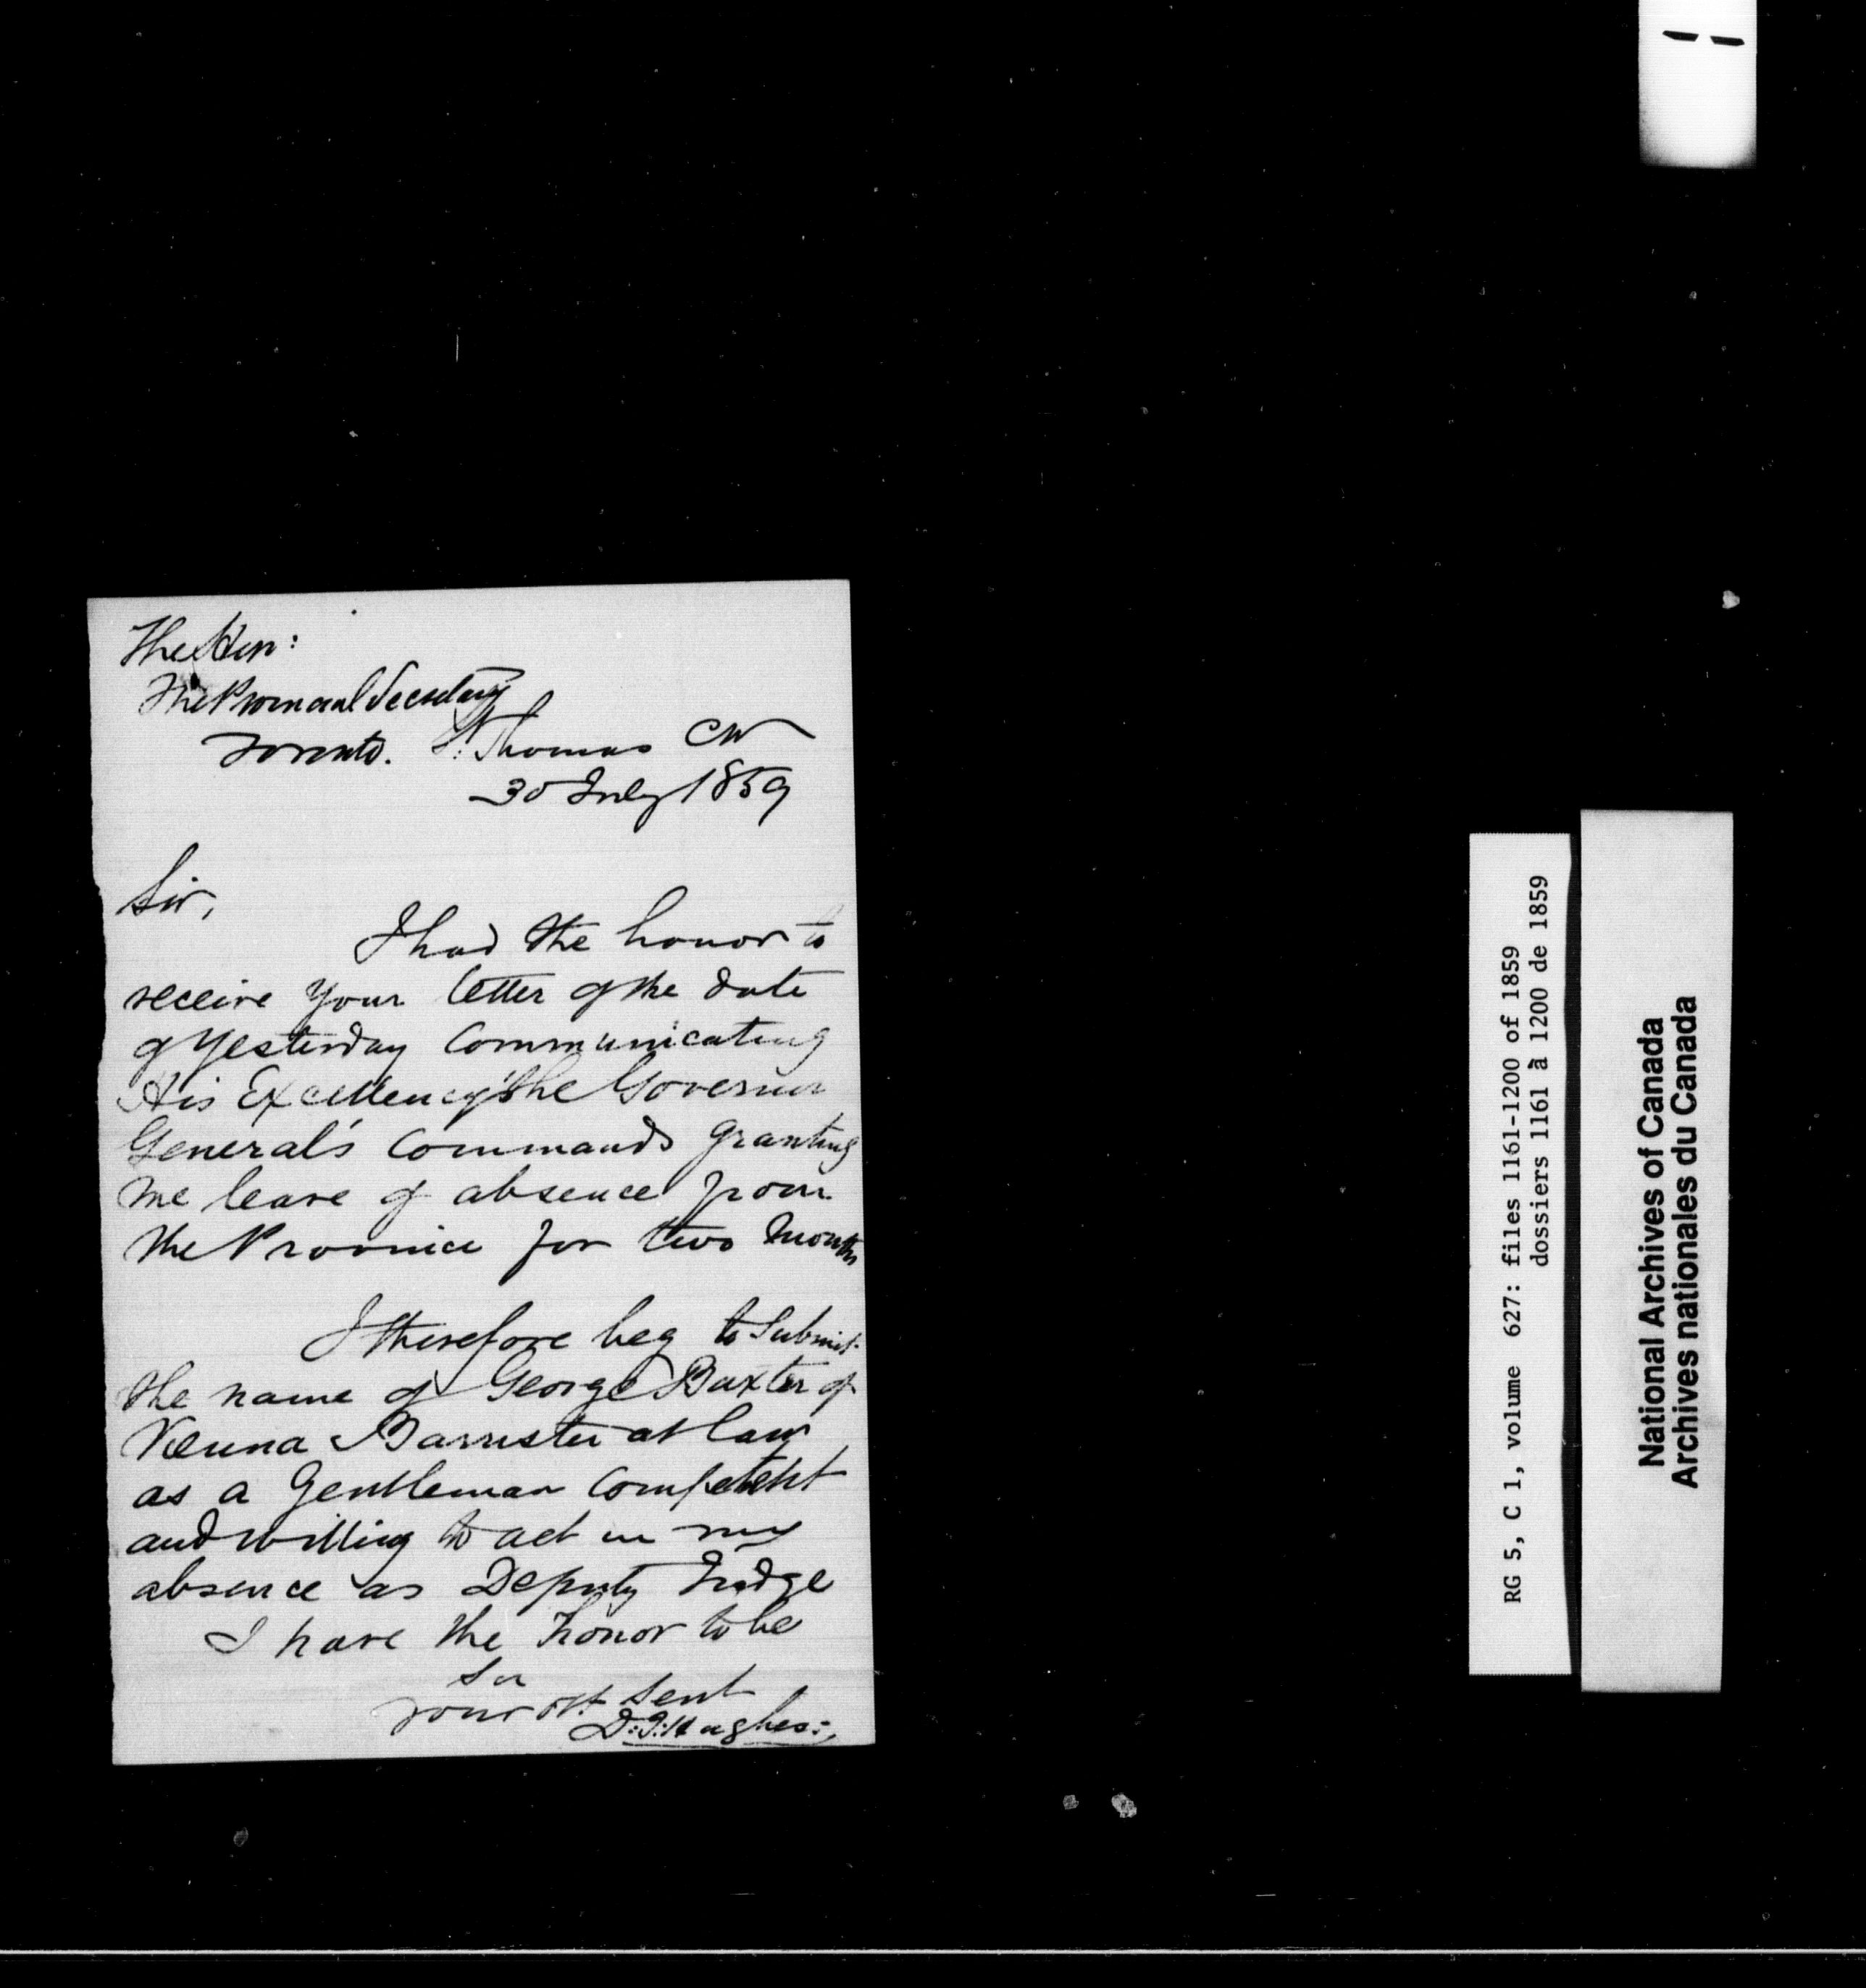 The Hon:
The Provincial Secretary
Toronto. St: Thomas CW
30 July 1859
Sir,
I had the honor to
receive your letter of the date
of Yesterday Communicating
His Excellency the Governor
General's Commands granting
me leave of absence from
the Province for two Months
I therefore beg to Submit
the name of George Baxter of
Vienna Barrister at law
as a Gentleman Competent
and Willing to act in my
absence as Deputy Judge
I have the honor to be
Sir
your obt. Servt
D: J: Hughes:
RG 5, C 1, volume 627: files 1161-1200 of 1859
dossiers 1161 à 1200 de 1859
National Archives of Canada
Archives nationales du Canada